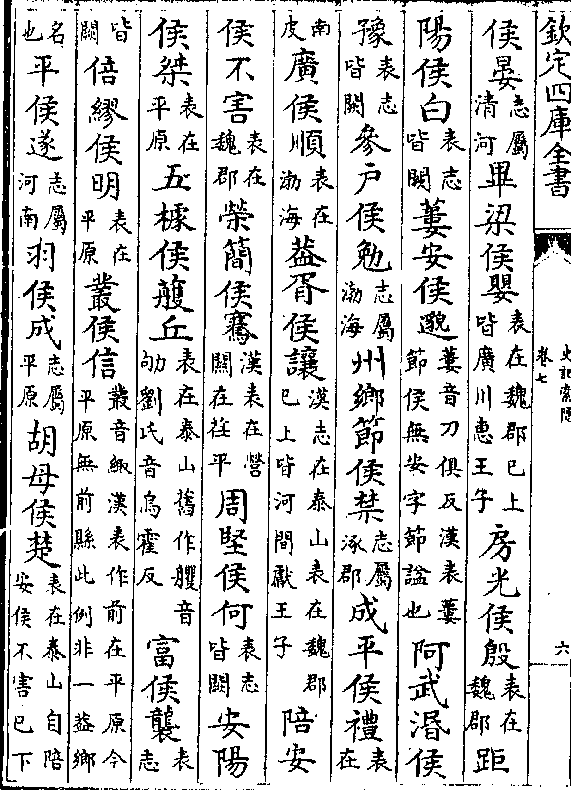 欽定四庫全書
史記索隱
卷七
六
侯晏志屬清河畢梁侯嬰表在魏郡已上皆廣川惠王子房光侯殷表在魏郡距
陽侯白表志皆闕蔞安侯邈蔞音刀俱反漢表蔞節侯無安字節諡也阿武湣侯
豫表志皆闕參户侯勉志屬渤海州鄉節侯禁志屬涿郡成平侯禮表在
南皮廣侯順表在渤海葢胥侯讓漢志在泰山表在魏郡已上皆河間獻王子陪安
侯不害表在魏郡榮簡侯騫漢表在營關在茌平周堅侯何表志皆闕安陽
侯桀表在平原五據侯雘丘表在泰山舊作臒音劬劉氏音烏霍反富侯襲表志
皆闕倍繆侯明表在平原叢侯信叢音緅漢表作前在平原今平原無前縣此例非一葢鄉
名也平侯遂志屬河南羽侯成志屬平原胡母侯楚表在泰山自陪安侯不害已下